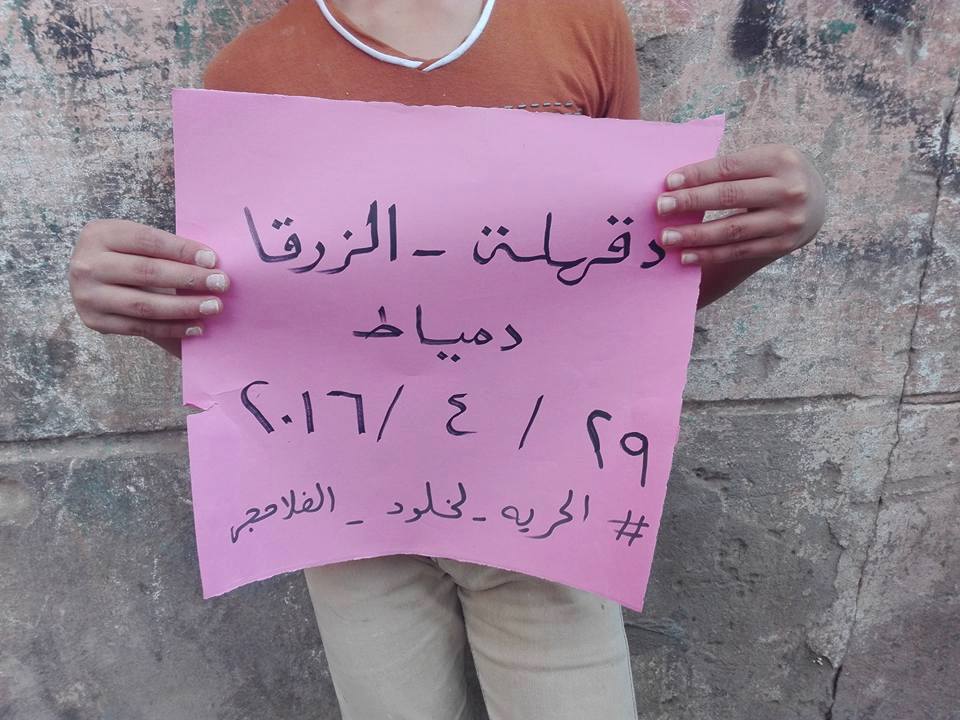 دقهلة - الزرقا
دمياط
٢٩ / ٤ / ٢٠١٦
# الحريه _ لخلود _ الفلاحجى